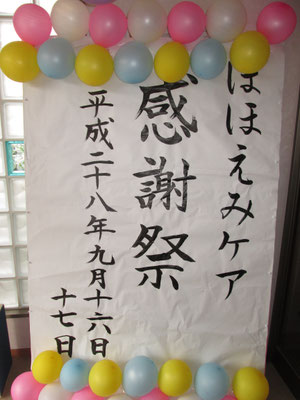 ほほえみケア
感謝祭
平成二十八年九月十六日
十七日